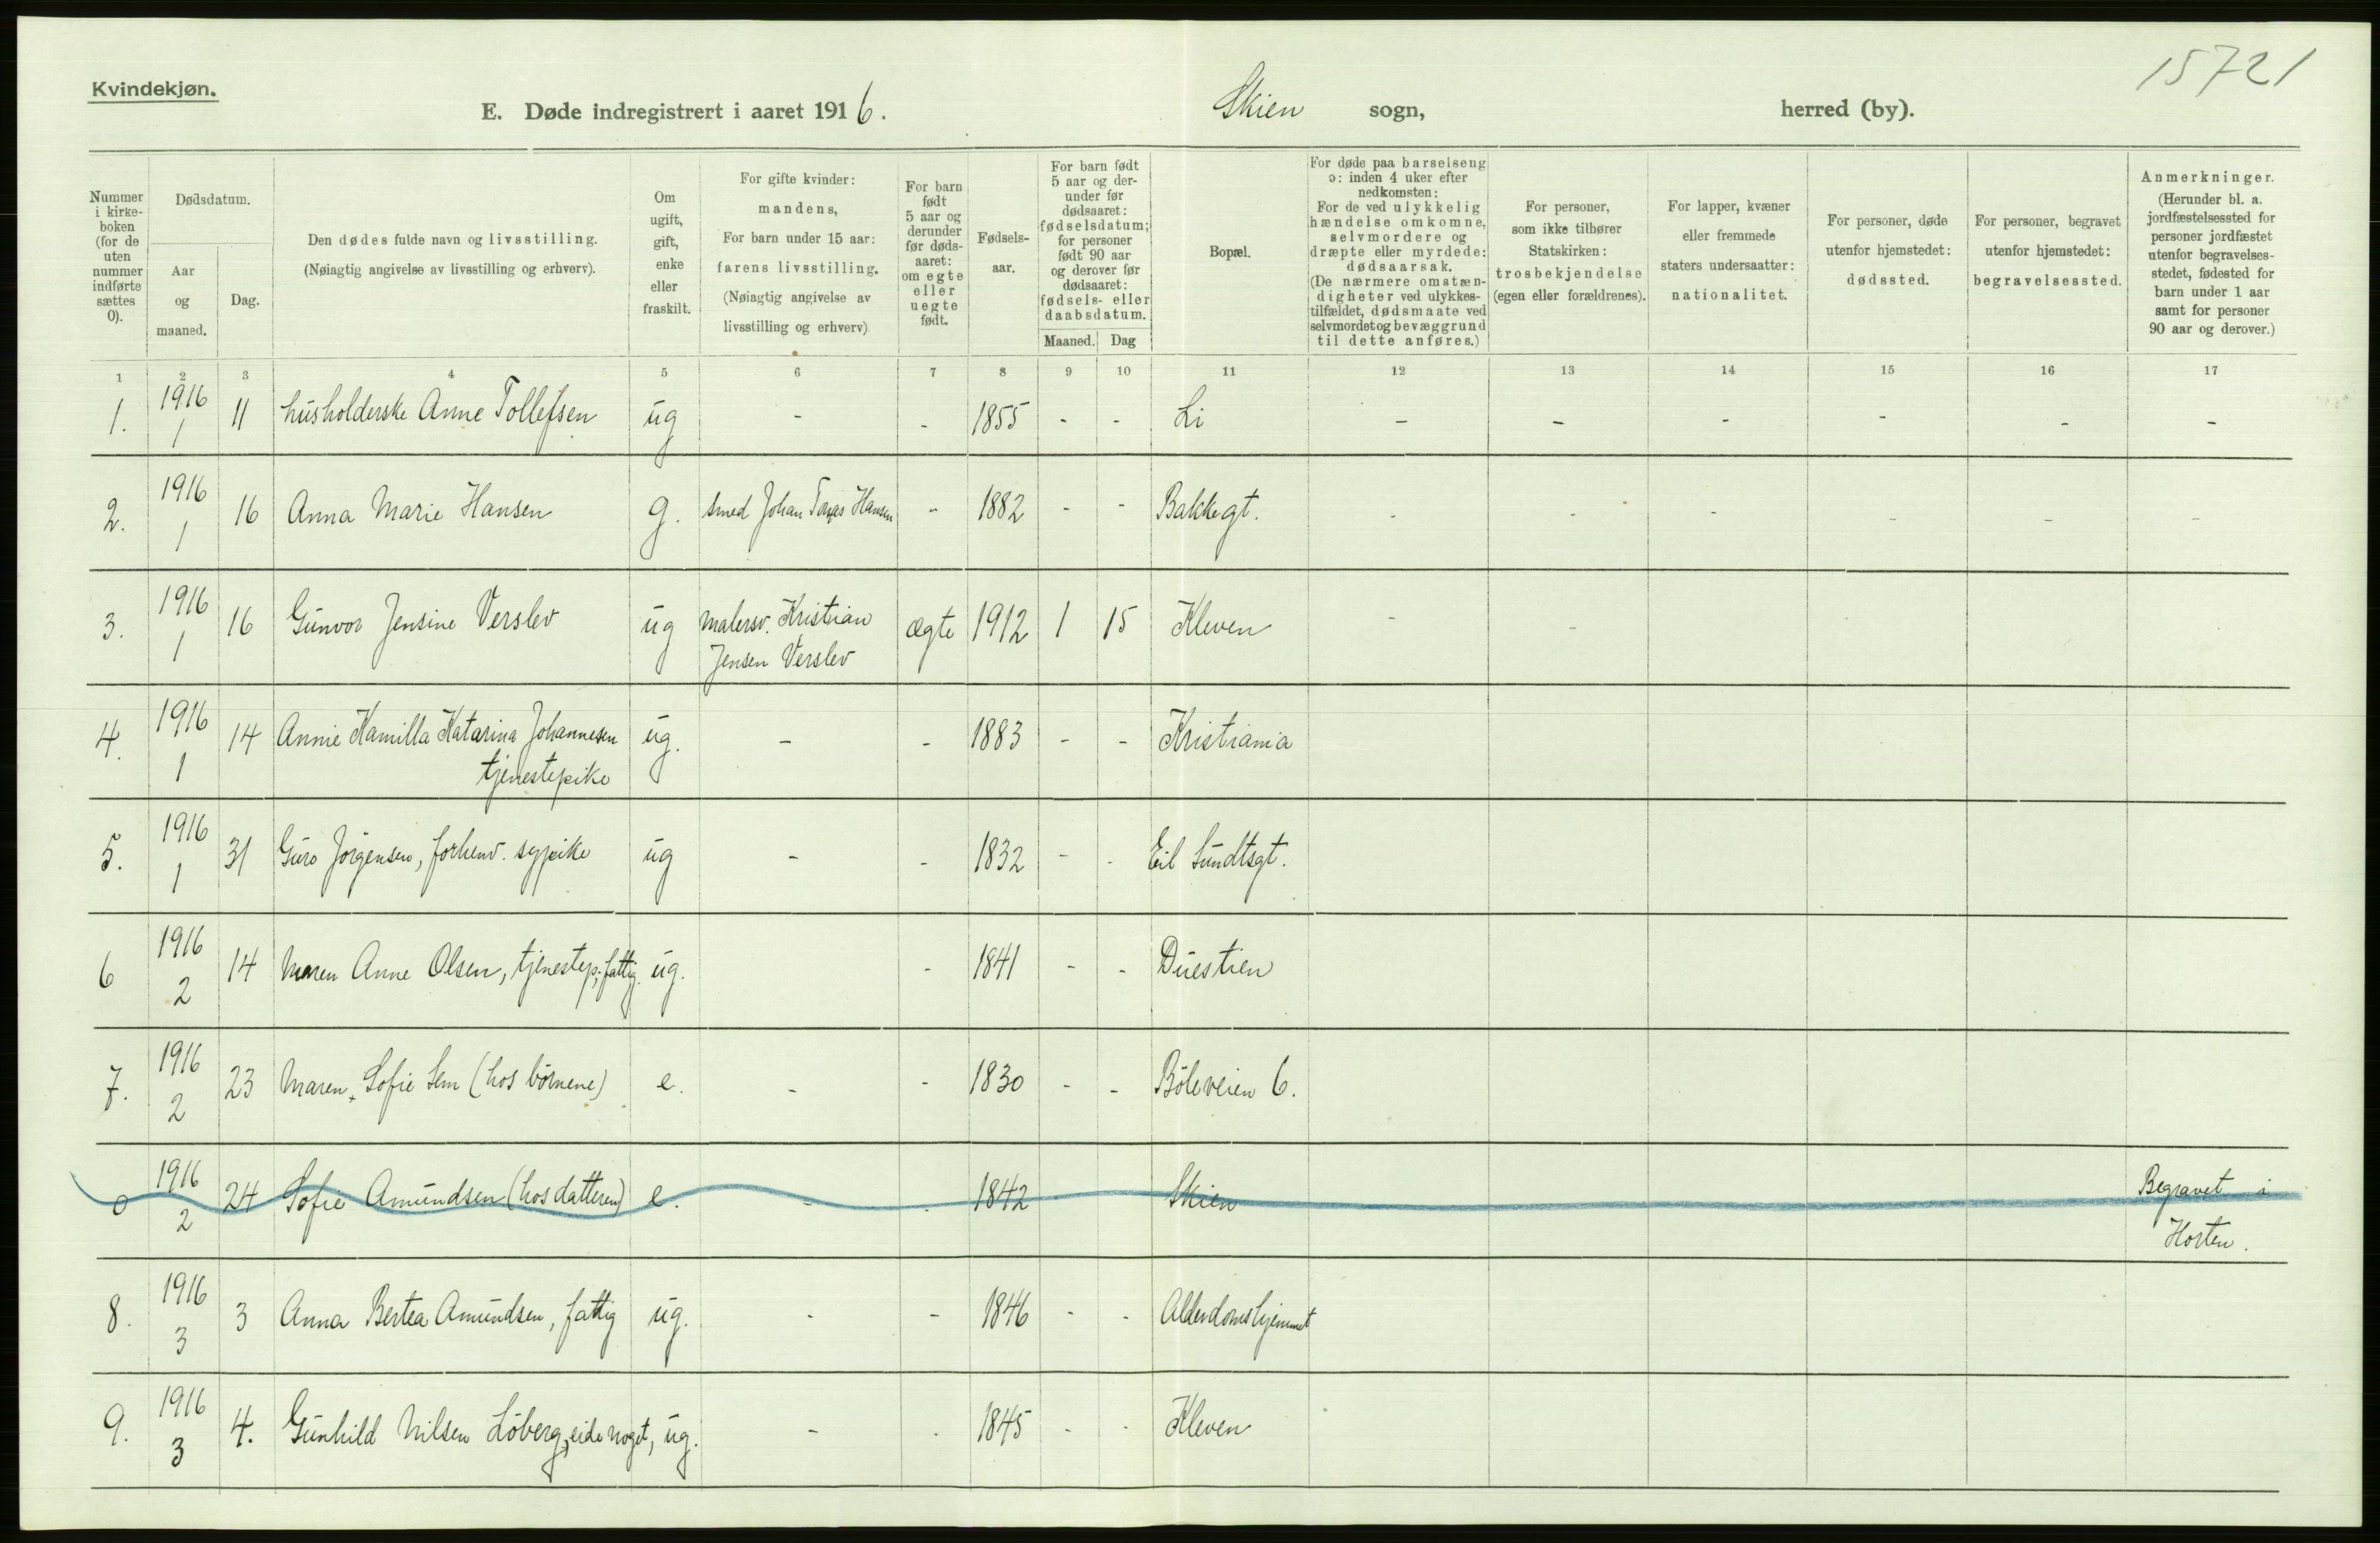 Kvindekjøn.
15721
E. Døde indregistrert i aaret 1916. Skien sogn, herred (by).
Nummer i kirke- boken (for de uten nummer indførte sættes 0).
Dødsdatum.
Aar og maaned.
Dag.
Den dødes fulde navn og livsstilling.
(Nøiagtig angivelse av livsstilling og erhverv).
Om ugift, gift, enke eller fraskilt.
For gifte kvinder:
mandens,
For barn under 15 aar:
farens livsstilling.
(Nøiagtig angivelse av
livsstilling og erhverv)
For barn født 5 aar og derunder før døds- aaret: om egte eller uegte født.
Fødsels- aar.
For barn født 5 aar og der- under før dødsaaret: fødselsdatum; for personer født 90 aar og derover før dødsaaret: fødsels- eller daabsdatum.
Maaned. Dag
Bopæl.
For døde paa barselseng
ɔ: inden 4 uker efter
nedkomsten:
For de ved ulykkelig
hændelse omkomne,
selvmordere og
dræpte eller myrdede:
dødsaarsak.
(De nærmere omstæn-
digheter ved ulykkes-
tilfældet, dødsmaate ved
selvmordet og bevæggrund
til dette anføres.)
For personer,
som ikke tilhører
Statskirken:
trosbekjendelse
(egen eller forældrenes).
For lapper, kvæner
eller fremmede
staters undersaatter:
nationalitet.
For personer, døde
utenfor hjemstedet:
dødssted.
For personer, begravet
utenfor hjemstedet:
begravelsessted.
Anmerkninger.
(Herunder bl. a.
jordfæstelsessted for
personer jordfæstet
utenfor begravelses-
stedet, fødested for
barn under 1 aar
samt for personer
90 aar og derover.)
1 2 3 4 5 6 7 8 9 10 11 12 13 14 15 16 17
1. 1916 1 11 husholderske Anne Tollefsen ug - - 1855 - - Li - - - - - -
2. 1916 1 16 Anna Marie Hansen g. smed Johan Hansen - 1882 - - Bakkegt. - - - - - -
3. 1916 1 16 Gunvor Jensine Verslev ug malersv. Kristian ægte 1912 1 15 Kleven - -
Jensen Verslev
4. 1916 1 14 Annie Kamilla Katarina Johannesen ug. - - 1883 - - Kristiania
tjenestepike
5. 1916 1 31 Guro Jörgensen, forhenv. sypike ug - - 1832 - - Eil Sundtsgt.
6 1916 2 14 Maren Anne Olsen, tjenestep., fattig. ug. - 1841 - - Duestien
7. 1916 2 23 Maren Sofie Sem (hos börnene) e. - - 1830 - - Böleveien 6.
0 1916 2 24 Sofie Amundsen (hos datteren) e. - - 1842 Skien Begravet i
Horten.
8. 1916 3 3 Anna Bertea Amundsen, fattig ug. - - 1846 - - Alderdomshjemmet
9. 1916 3 4. Gunhild Nilsen Löberg, eide noget, ug. - - 1845 - - Kleven